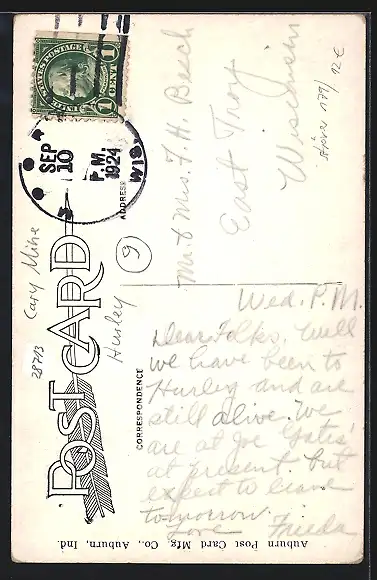 UNITED STATES POSTAGE
1 CENT 1
SEP
10
P.M.
1924
WIS.
POST CARD
ADDRESS
Mr. & Mrs. F. H. Beech
East Troy
Wisconsin
12 €
Cary Mine
Hurley
9
28713
CORRESPONDENCE
Wed. P.M.
Dear Folks. Well
we have been to
Hurley and are
still alive. We
are at Joe Yates'
at present but
expect to leave
tomorrow.
Love Frieda
Auburn Post Card Mfg. Co., Auburn, Ind.